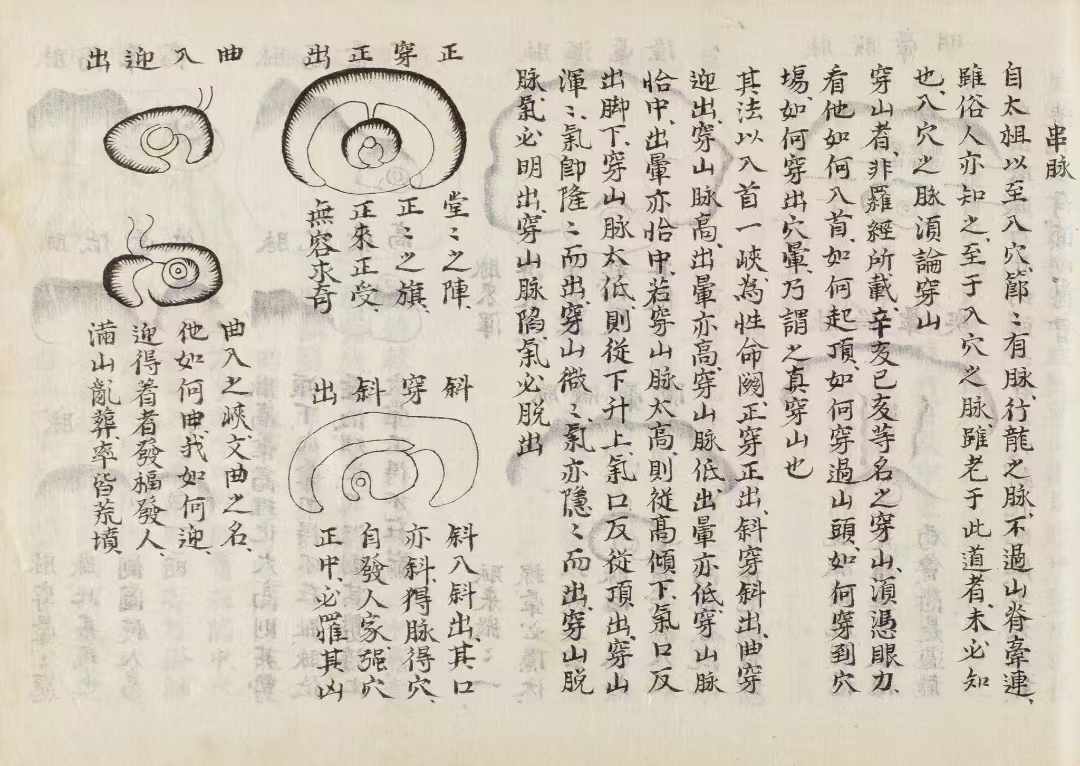 串脉
自太祖以至入穴、節〻有脉、行龍之脉、不過山脊牽連、
雖俗人亦知之、至于入穴之脉、雖老于此道者、未必知
也、入穴之脉、須論穿山
穿山者、非羅經所載、辛亥己亥等名之穿山、須憑眼力、
看他如何入首、如何起頂、如何穿過山頭、如何穿到穴
場、如何穿出穴暈、乃謂之真穿山也
其法以入首一峽、為性命關、正穿正出、斜穿斜出、曲穿
迎出、穿山脉高、出暈亦高、穿山脉低、出暈亦低、穿山脉
恰中、出暈亦恰中、若穿山脉太高、則従高傾下、氣口反
出脚下、穿山脉太低、則従下升上、氣口反従頂出、穿山
渾〻、氣即隆〻而出、穿山微〻、氣亦隱〻而出、穿山脱
脉、氣必明出、穿山脉陷、氣必脱出
正穿正出
堂〻之陣、
正〻之旗、
正來正受、
無容求奇
斜穿斜出
斜入斜出、其口
亦斜、得脉得穴、
自發人家、强穴
正中、必罹其凶
曲入迎出
曲入之峽、文曲之名、
他如何曲、我如何迎、
迎得着者、發福發人、
滿山亂葬、率皆荒墳、